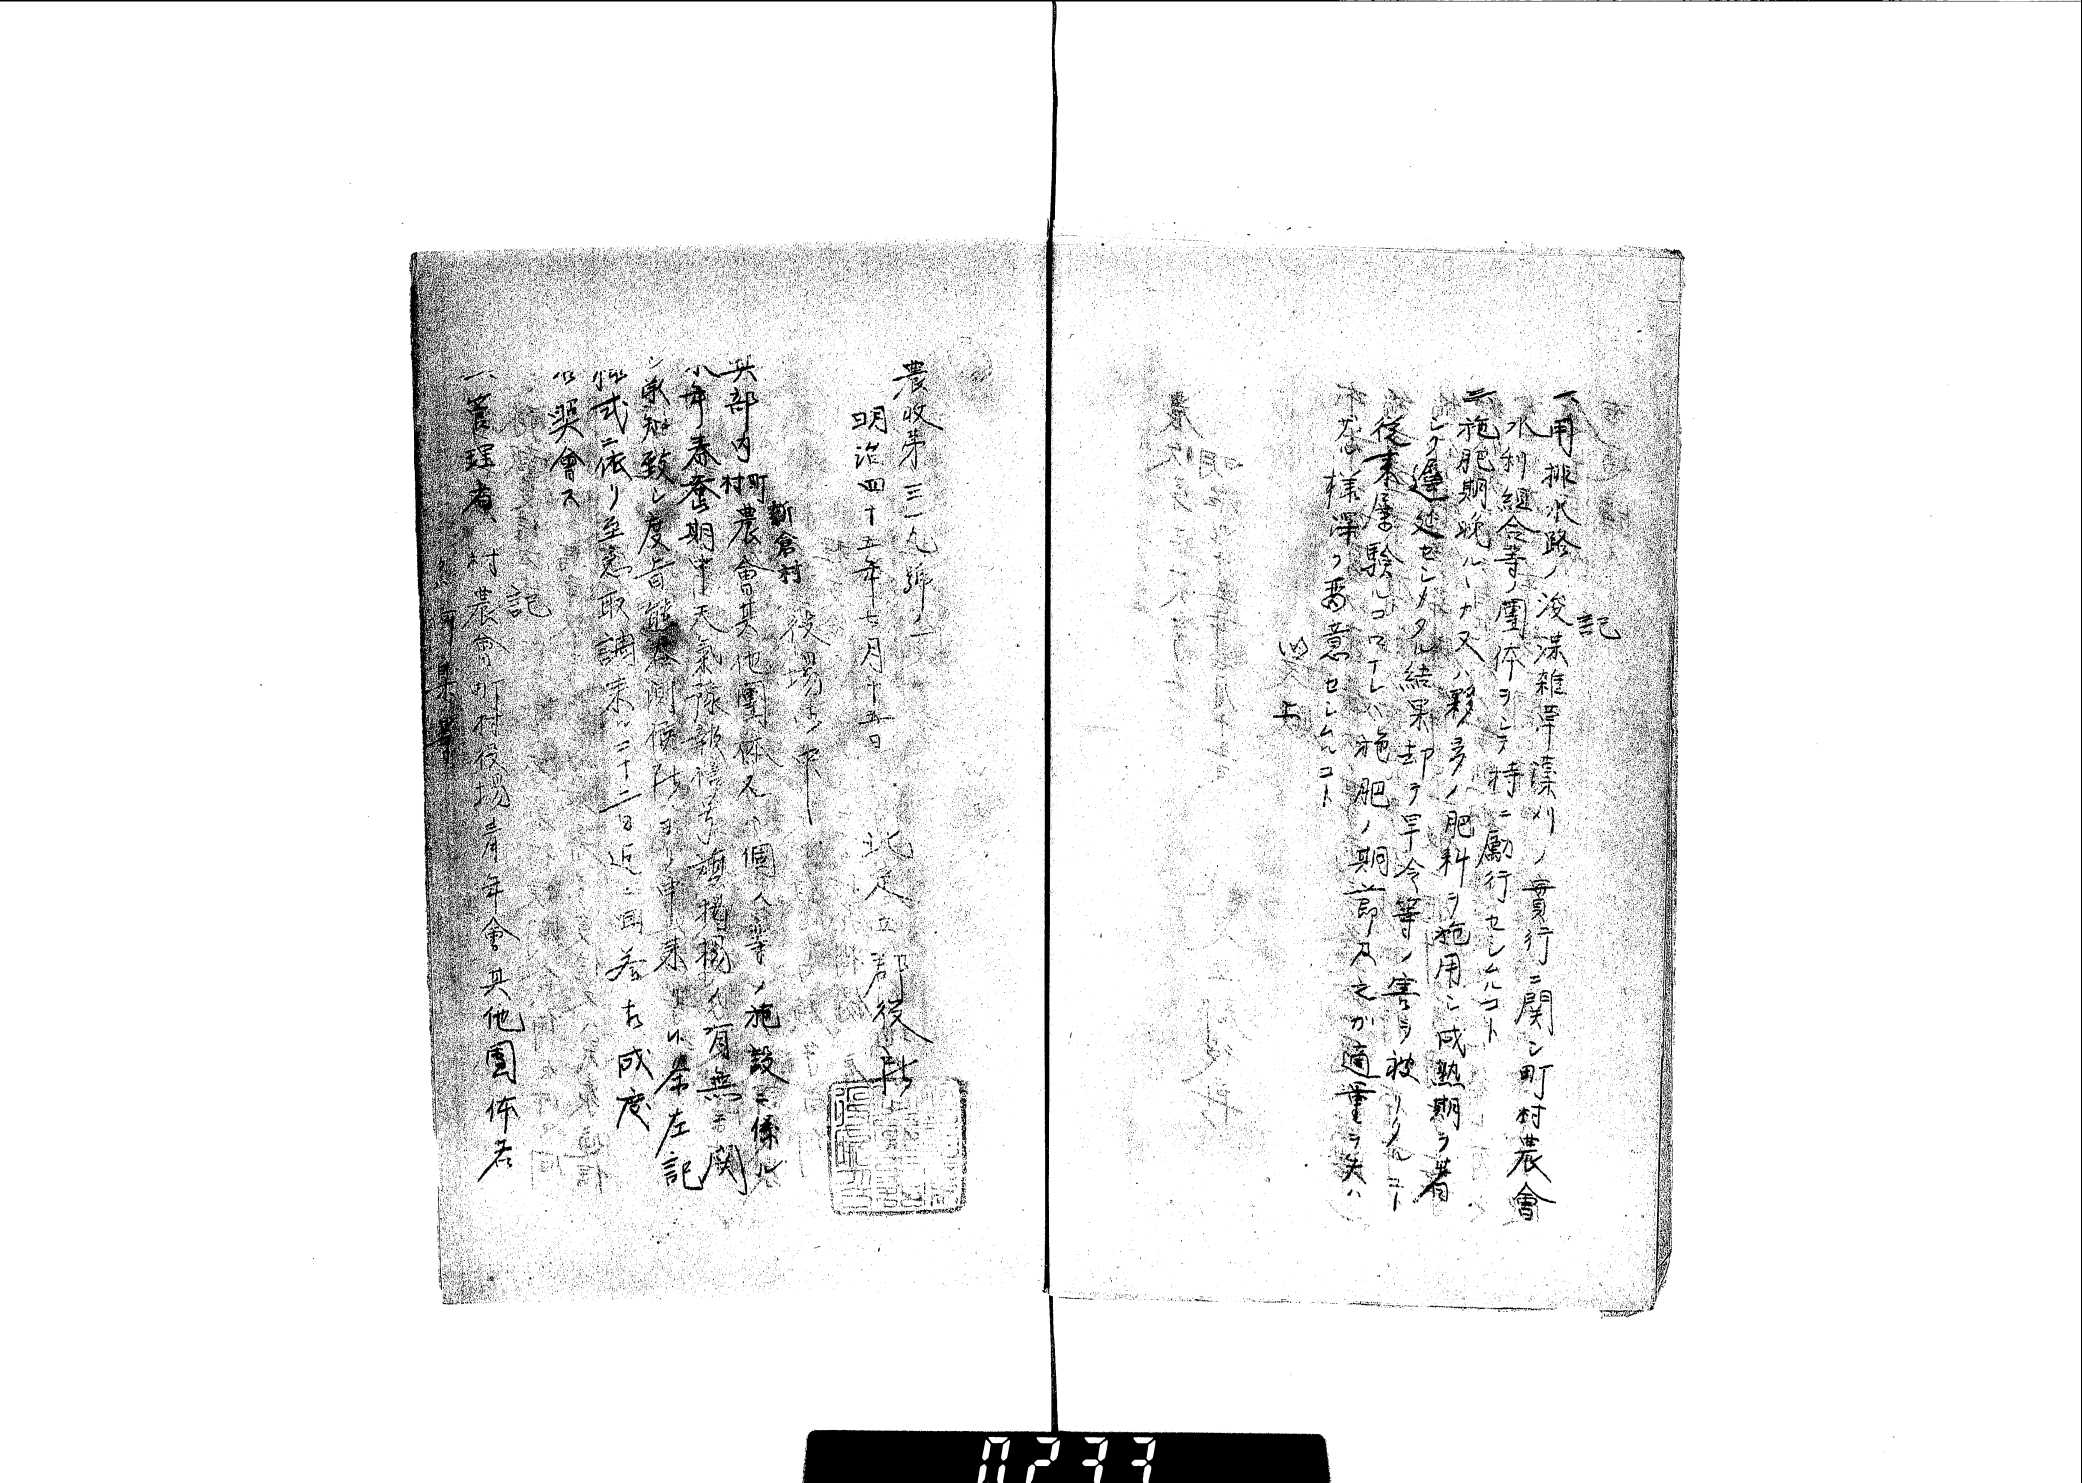 記
一用排水路ノ浚渫雑草藻刈ノ實行ニ関シ町村農會
水利組合等ノ團体ヲシテ特ニ勵行セシムルコト
二施肥期晩ルヽカ又ハ夥多ノ肥料ヲ施用シ成熟期ヲ著
シク遅延セシメタル結果却テ旱冷等ノ害ヲ被リタルコト
従来屡験ルコトナレハ施肥ノ期節及之カ適量ヲ失ハ
様深ク留意セシムルコト
以上
農收第三一九號ノ一
明治四十五年七月十五日
北足立郡役所
新倉村役場御中
其部内町村農會其他團体又ハ個人等ノ施設ニ係ル
本年春蚕期中天氣豫報信号旗掲揚ノ有無ニ関
シ承知致シ度旨熊谷測候所ヨリ申来リ候條左記
様式ニ依リ至急取調来ル二十二日迄ニ回答相成度
此段照會ス
記
一管理者 村農會町村役場青年會其他團体若
0233